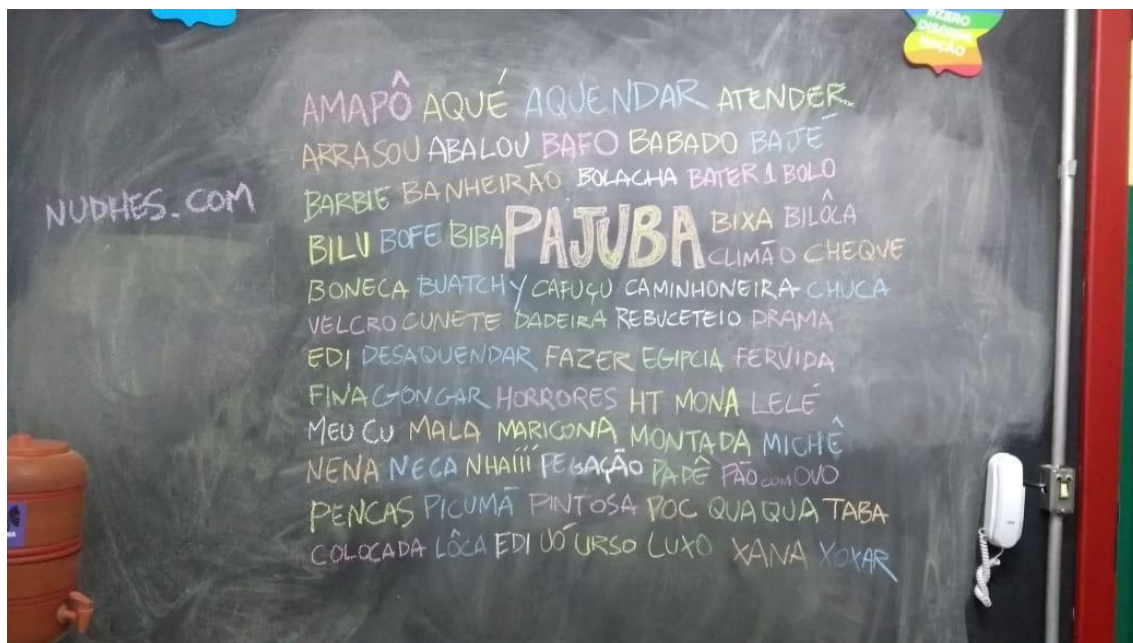 #ZERO
DISCRIMI
NAÇÃO
AMAPÔ AQUÉ AQUENDAR ATENDER...
ARRASOU ABALOU BAFO BABADO BAJÉ
NUDHES.COM
BARBIE BANHEIRÃO BOLACHA BATER 1 BOLO
BILU BOFE BIBA PAJUBA BIXA BILÔCA
CLIMÃO CHEQUE
BONECA BUATCHY CAFUÇU CAMINHONEIRA CHUCA
VELCRO CUNETE DADEIRA REBUCETEIO DRAMA
EDI DESAQUENDAR FAZER EGIPCIA FERVIDA
FINA GONGAR HORRORES HT MONA LELÉ
MEU CU MALA MARICONA MONTADA MICHÊ
NENA NECA NHAÍÍÍ PEGAÇÃO PADÊ PÃO COM OVO
PENCAS PICUMÃ PINTOSA POC QUA QUA TABA
COLOCADA LÔCA EDI UÓ URSO LUXO XANA XOXAR